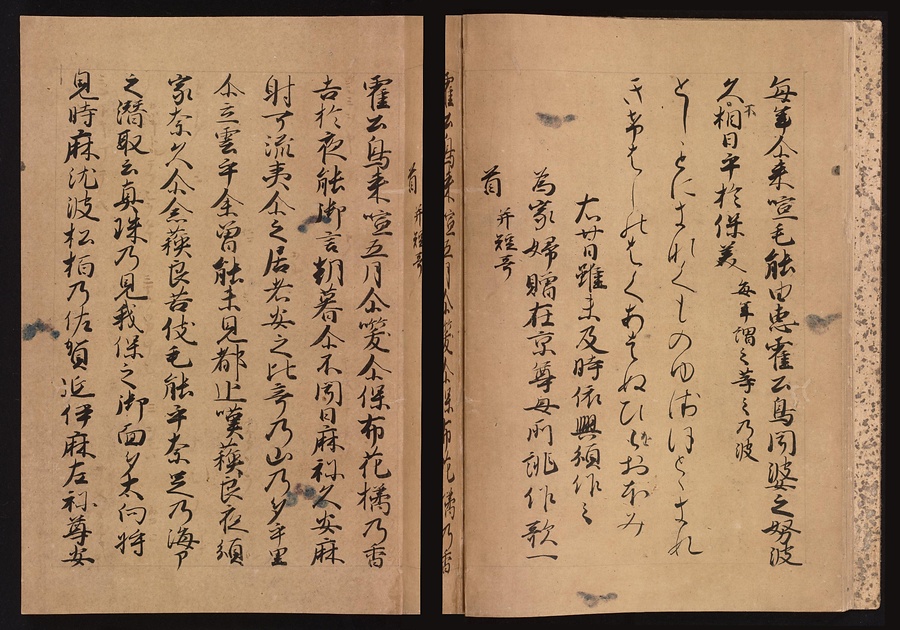 毎年尓来喧毛能由恵霍公鳥聞婆之努波
久不相日乎於保美 毎年謂之等之乃波
としことにきなくものゆゑほとゝきす
きけはしのはくあはぬひをおほみ
右廿日雖未及時依興預作之
為家婦贈在京尊母所誂作歌一
首 并短哥
霍公鳥来喧五月尓咲尓保布花橘乃香
吉於夜能御言朝暮尓不聞日麻祢久安麻
射可流夷尓之居者安之比奇乃山乃多乎里
尓立雲乎余曽能未見都止嘆蘓良夜須
家奈久尓念蘓良苦伎毛能乎奈呉乃海部
之潜取云真珠乃見我保之御面多太向将
見時麻泥波松栢乃佐賀延伊麻左祢尊安